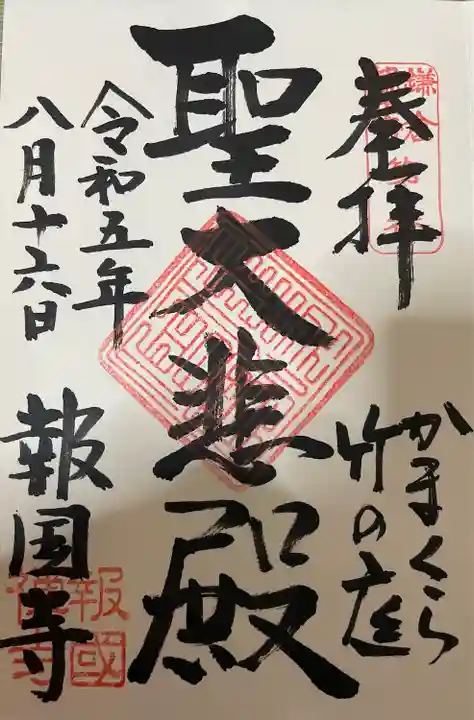 奉拝
かまくら
竹の庭
聖大悲殿
令和五年
八月十六日
報国寺
報國
禪寺